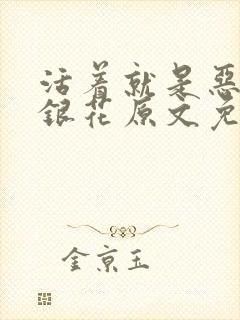 活着就是恶
銀花原文免
金京玉